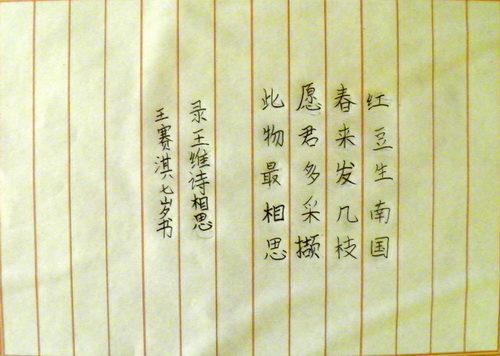 红豆生南国
春来发几枝
愿君多采撷
此物最相思
录王维诗相思
王赛淇七岁书